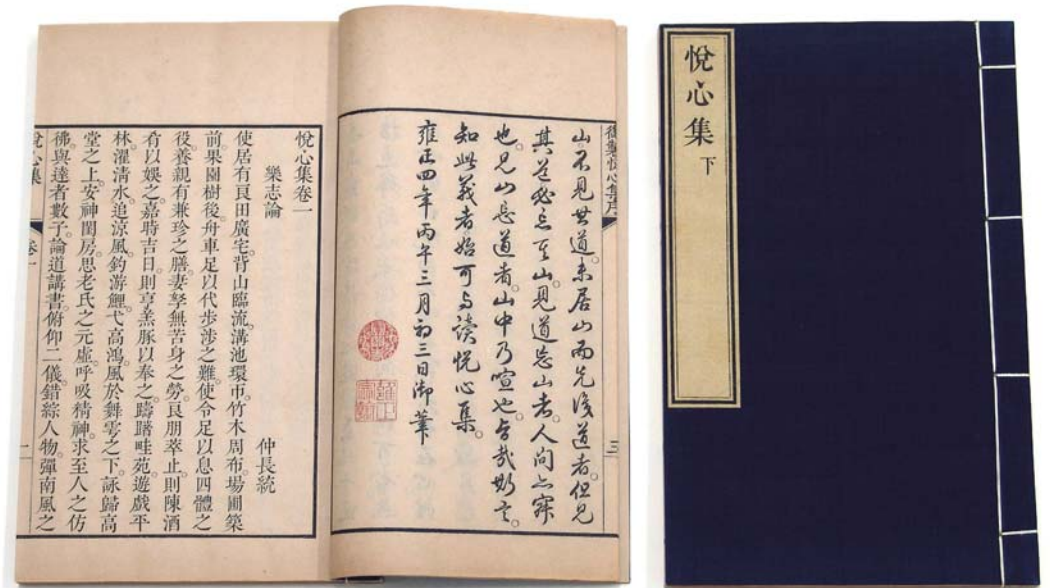 御製悅心集序
山。不見其道。未居山而先識道者。但見
其道。必忘其山。見道忘山者。人间亦寂
也。見山忘道者。山中乃喧也。旨哉斯言。
知此義者。始可与讀悅心集。
雍正四年丙午三月初三日御筆
三
悅心集卷一
樂志論
仲長統
使居有良田廣宅。背山臨流。溝池環帀。竹木周布。場圃築
前。果園樹後。舟車足以代步涉之難。使令足以息四體之
役。養親有兼珍之膳。妻孥無苦身之勞。良朋萃止。則陳酒
肴以娛之。嘉時吉日。則亨羔豚以奉之。躊躇畦苑。遊戲平
林。濯清水。追涼風。釣游鯉。弋高鴻。風於舞雩之下。詠歸高
堂之上。安神閨房。思老氏之元虛。呼吸精神。求至人之仿
彿。與達者數子。論道講書。俯仰二儀。錯綜人物。彈南風之
悅心集
卷一
一
悅心集 下